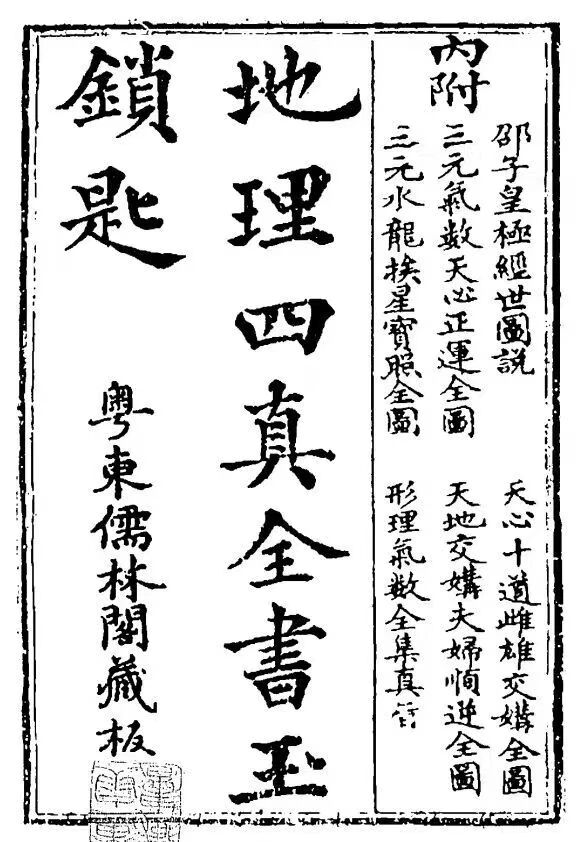 內附
邵子皇極經世圖說
三元氣数天心正運全圖
三元水龍挨星寶照全圖
天心十道雌雄交媾全圖
天地交媾夫婦順逆全圖
形理氣数全集真
地理四真全書玉
鎖匙
粤東儒林閣藏板